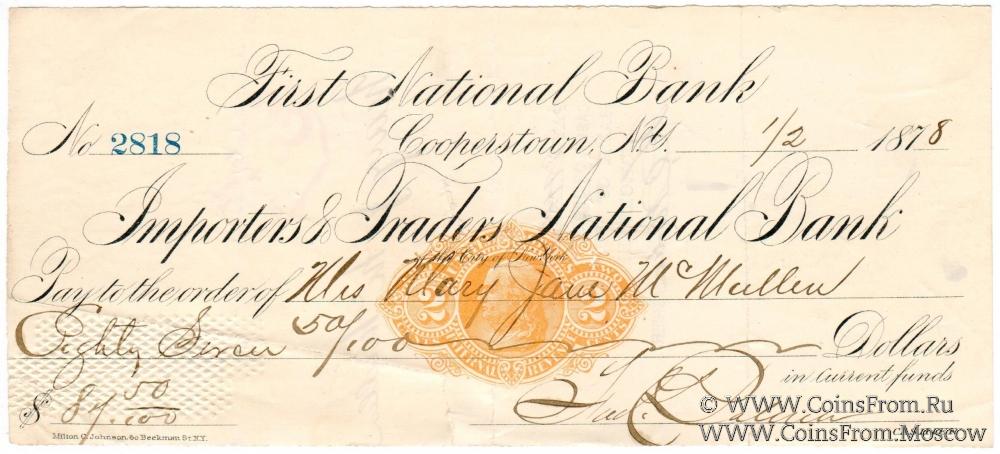 First National Bank
No 2818 Cooperstown, N.Y. 1/2 1878
Importers & Traders National Bank
of the City of New York
Pay to the order of Mrs Mary Jane McMullen
2 2
Eighty Seven 50/100 Dollars
in current funds
$ 87.50/100
Milton C. Johnson, 60 Beekman St. N.Y.
© WWW.CoinsFrom.Ru
© WWW.CoinsFrom.Moscow